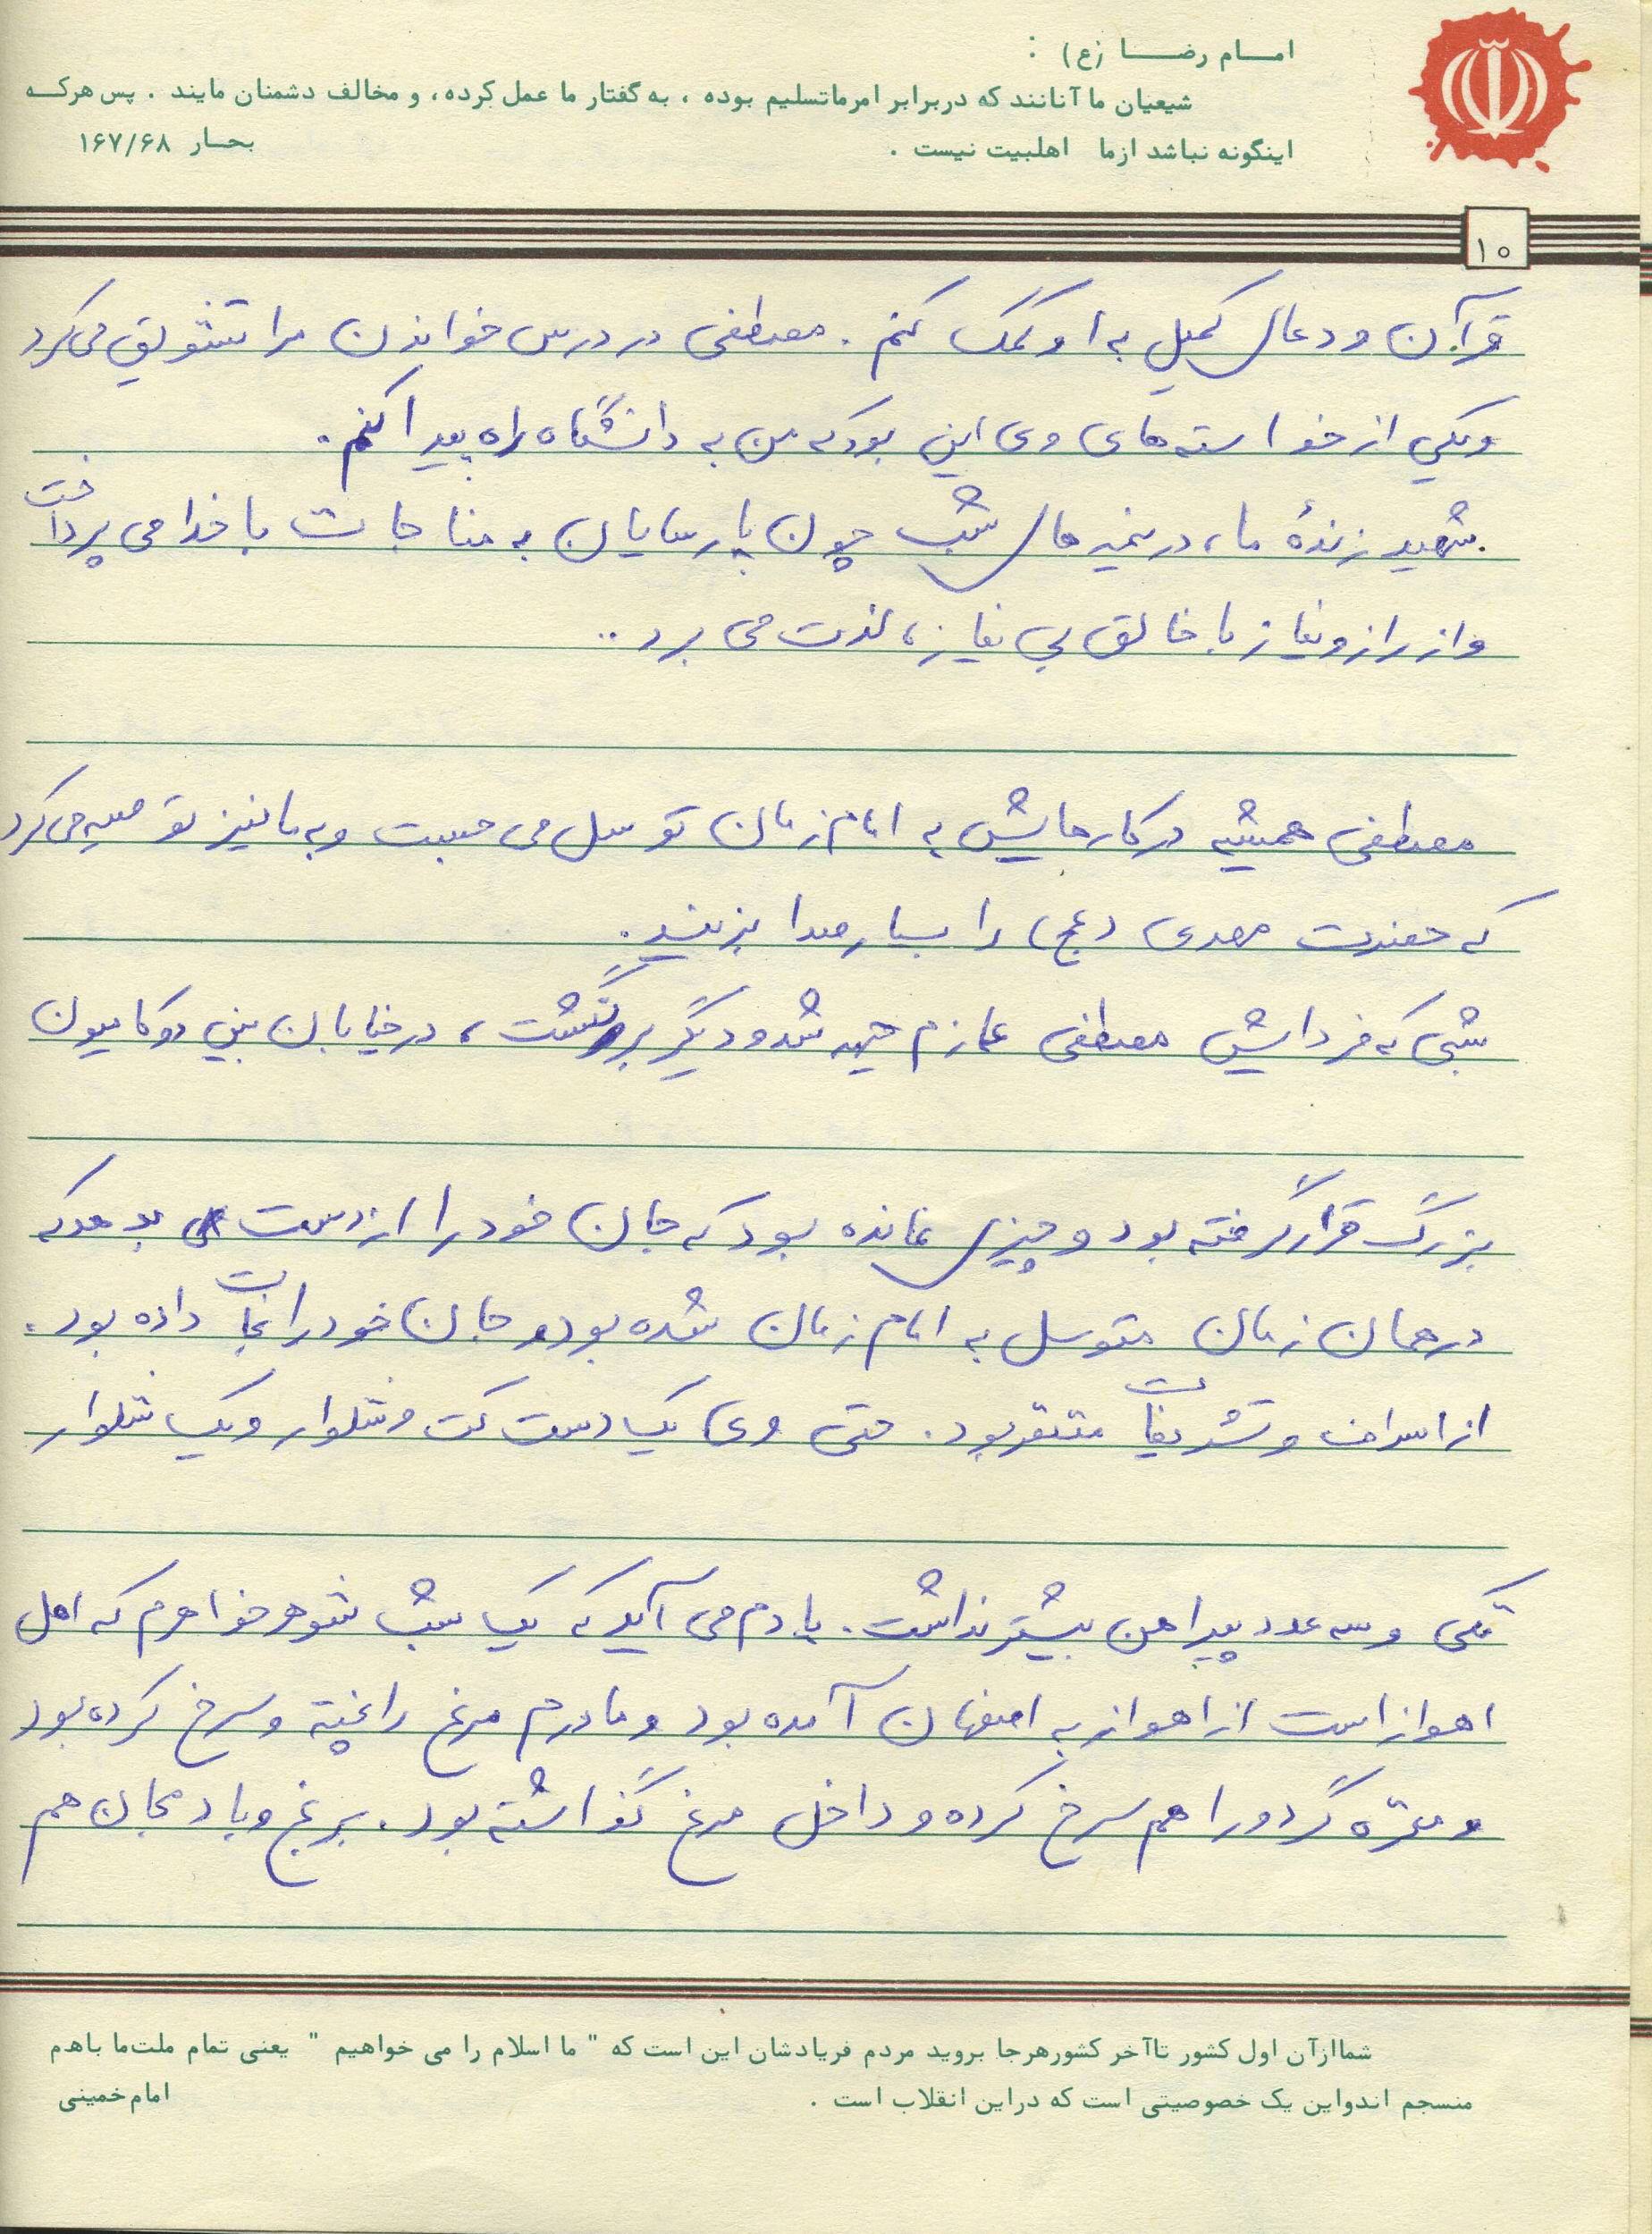 امام رضا (ع) :
شیعیان ما آنانند که دربرابر امرماتسلیم بوده ، به گفتار ما عمل کرده ، و مخالف دشمنان مایند . پس هرکه
اینگونه نباشد ازما اهلبیت نیست .
بحار ۱۶۷/۶۸
۱۰
قرآن و دعای کمیل به او کمک کنم . مصطفی در درس خواندن مرا تشویق می‌کرد
و یکی از خواسته های وی این بود که من به دانشگاه راه پیدا کنم .
شهید زندهٔ ما، در نیمه های شب چون پارسایان به مناجات با خدا می پرداخت
و از راز و نیاز با خالق بی نیاز، لذت می برد ..
مصطفی همیشه در کارهایش به امام زمان توسل می جست و به ما نیز توصیه می کرد
که حضرت مهدی (عج) را بسیار صدا بزنید .
شبی که فردایش مصطفی عازم جبهه شد و دیگر برنگشت ، در خیابان بین دو کامیون
بزرگ قرار گرفته بود و چیزی نمانده بود که جان خود را از دست بدهد که
در همان زمان متوسل به امام زمان شده بود و جان خود را نجات داده بود .
از اسراف و تشریفات متنفر بود . حتی وی یک دست کت و شلوار و یک شلوار
تکی و سه عدد پیراهن بیشتر نداشت . یادم می آید که یک شب شوهر خواهرم که اهل
اهواز است از اهواز به اصفهان آمده بود و مادرم مرغ را پخته و سرخ کرده بود
و مغز گردو را هم سرخ کرده و داخل مرغ گذاشته بود . برنج و بادمجان هم
شماازآن اول کشور تاآخر کشورهرجا بروید مردم فریادشان این است که " ما اسلام را می خواهیم " یعنی تمام ملت‌ما باهم
منسجم اندواین یک خصوصیتی است که دراین انقلاب است .
امام خمینی